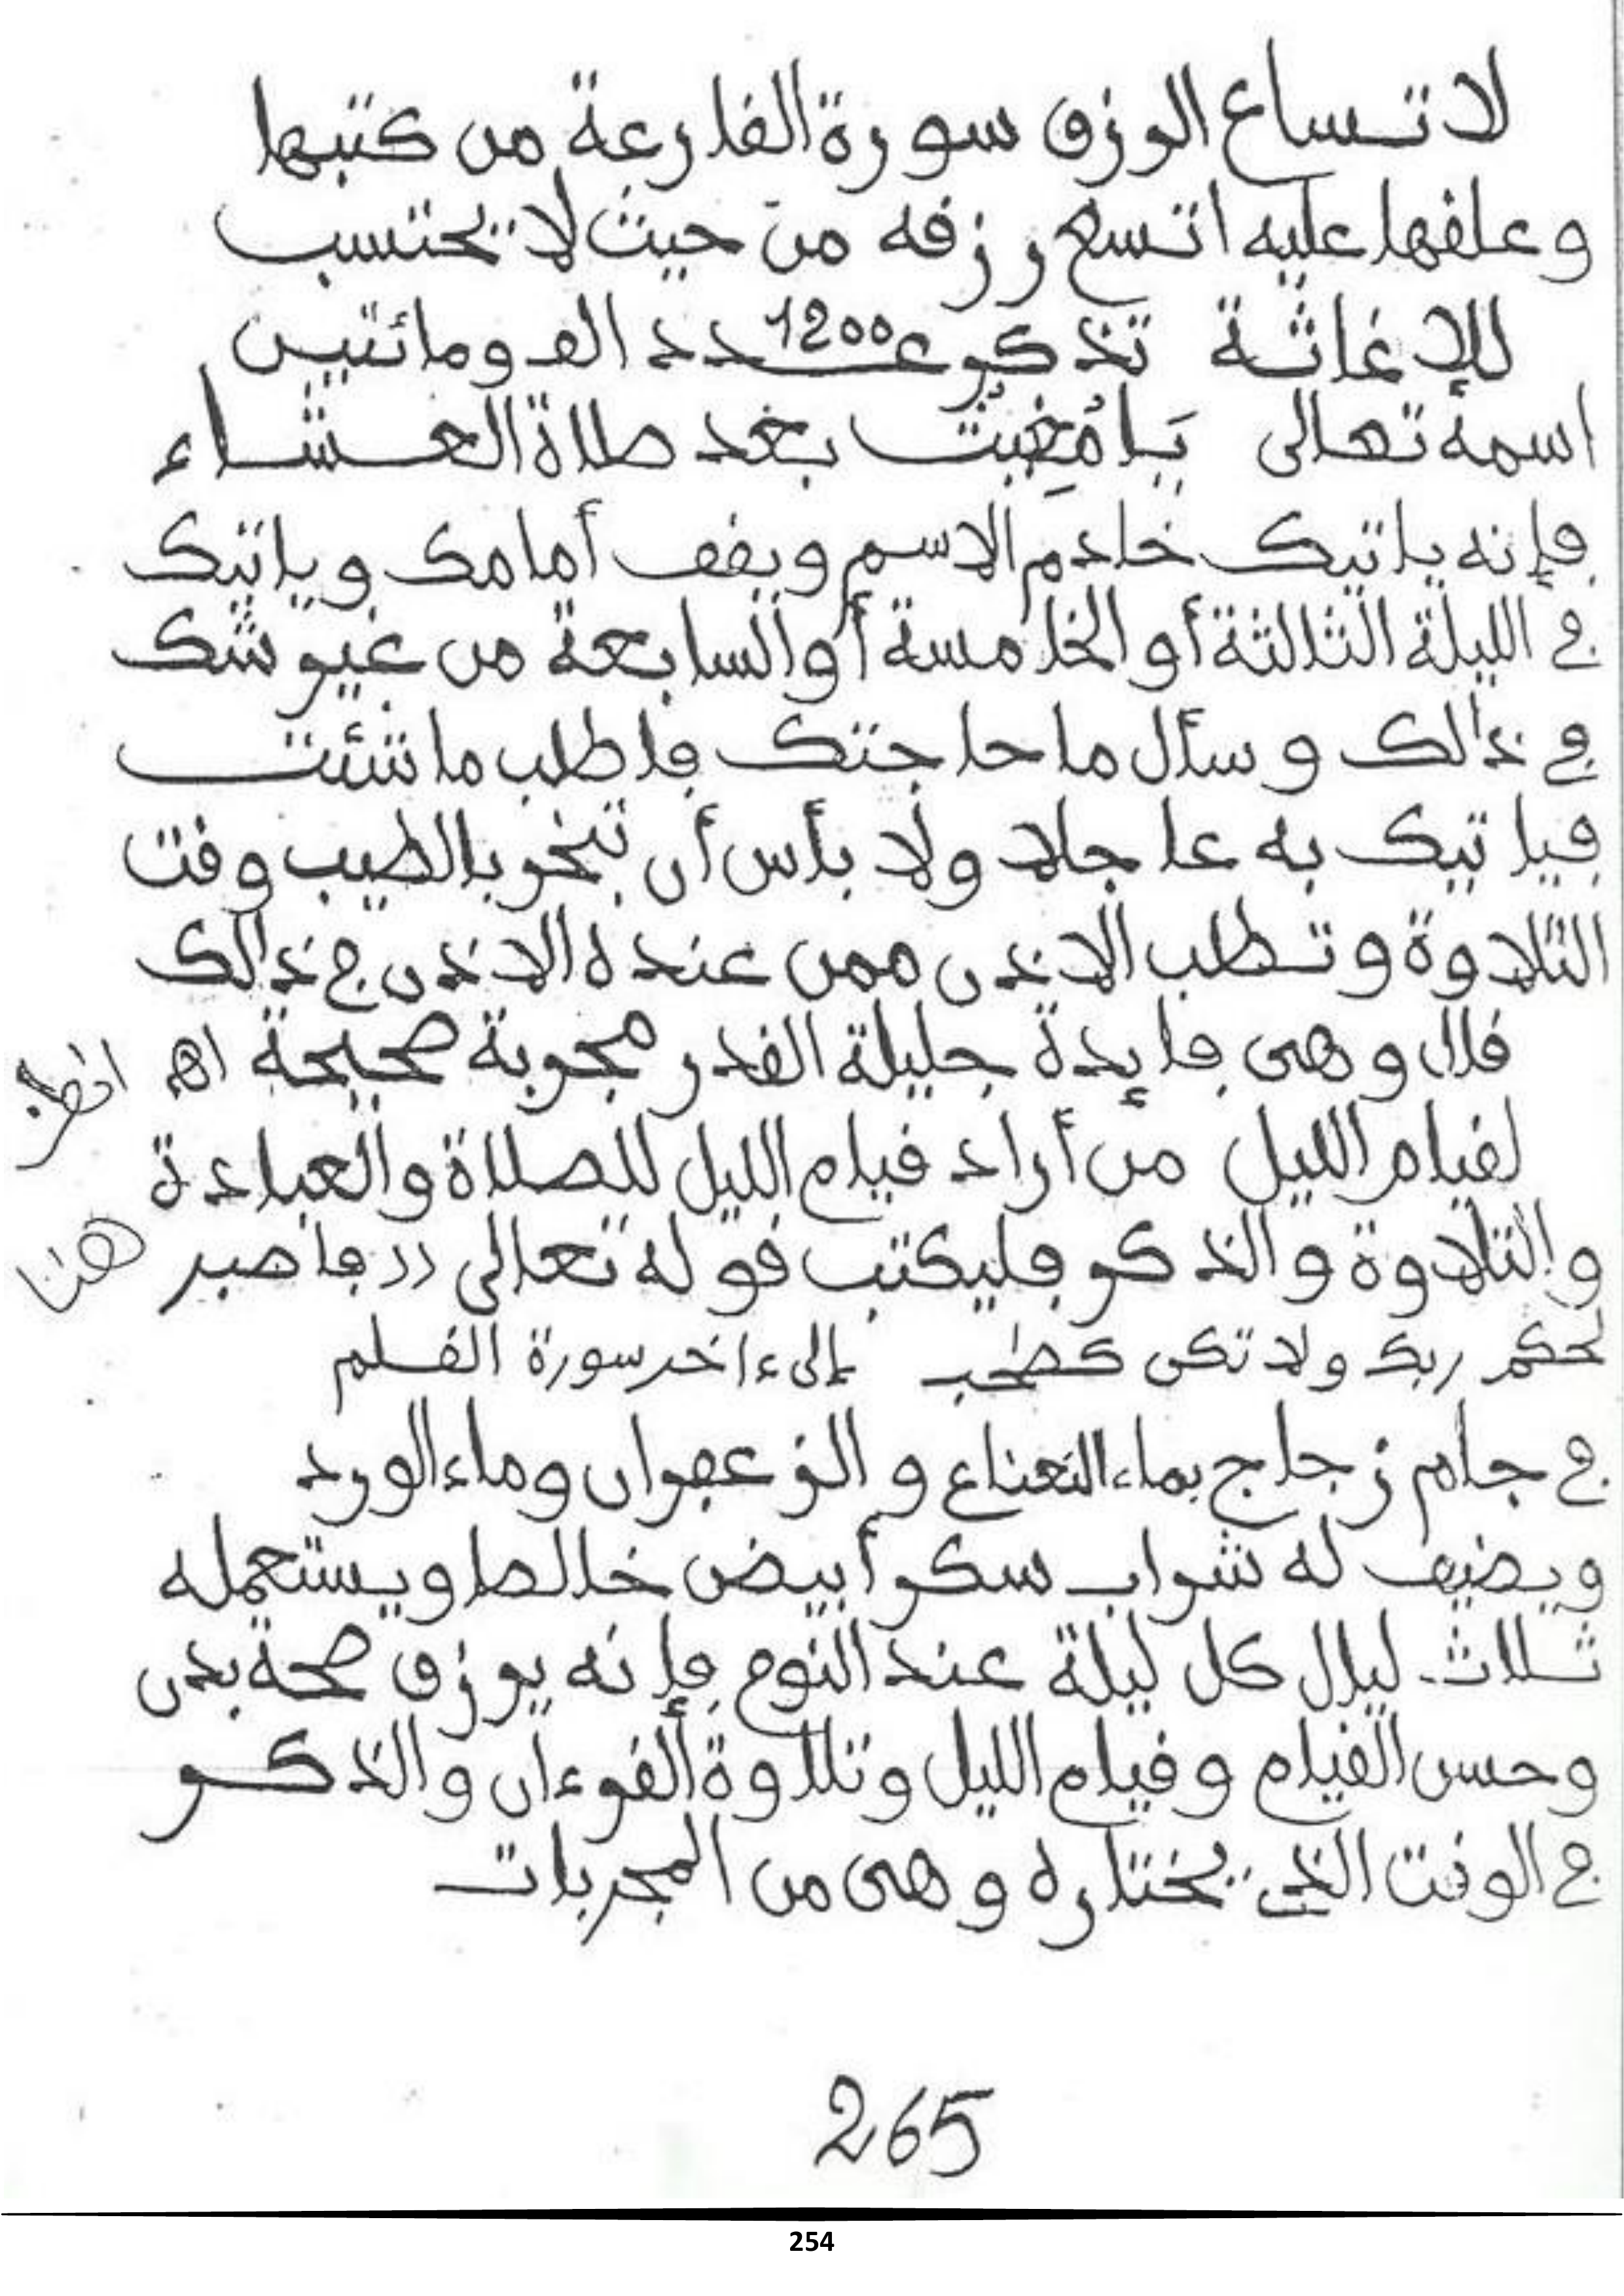 لاتساع الرزق سورة القارعة من كتبها
وعلقها عليه اتسع رزقه من حيث لا يحتسب
للإغاثة تذكر عدد 1200 الف ومائتين
اسمه تعالى يَا مُغِيثُ بعد صلاة العشاء
فإنه ياتيك خادم الاسم ويقف أمامك وياتيك
في الليلة الثالثة أو الخامسة أو السابعة من غير شك
في ذالك وسأل ما حاجتك فاطلب ما شئت
فياتيك به عاجلا ولا بأس أن تبخر بالطيب وقت
التلاوة وتطلب الاذن ممن عنده الاذن في ذالك
قال وهي فايدة جليلة القدر مجربة صحيحة اهـ انظر
لقيام الليل من أراد قيام الليل للصلاة والعبادة
والتلاوة والذكر فليكتب قوله تعالى (( فاصبر هنا
لحكم ربك ولا تكن كصحب إلى ءاخر سورة القلم
في جام زجاج بماء النعناع والزعفران وماء الورد
ويضيف له شراب سكر أبيض خالط ويستعمله
ثلاث ليال كل ليلة عند النوم فإنه يرزق صحة بدن
وحسن القيام وقيام الليل وتلاوة القرءان والذكر
في الوقت الذي يختاره وهي من المجربات
265
254